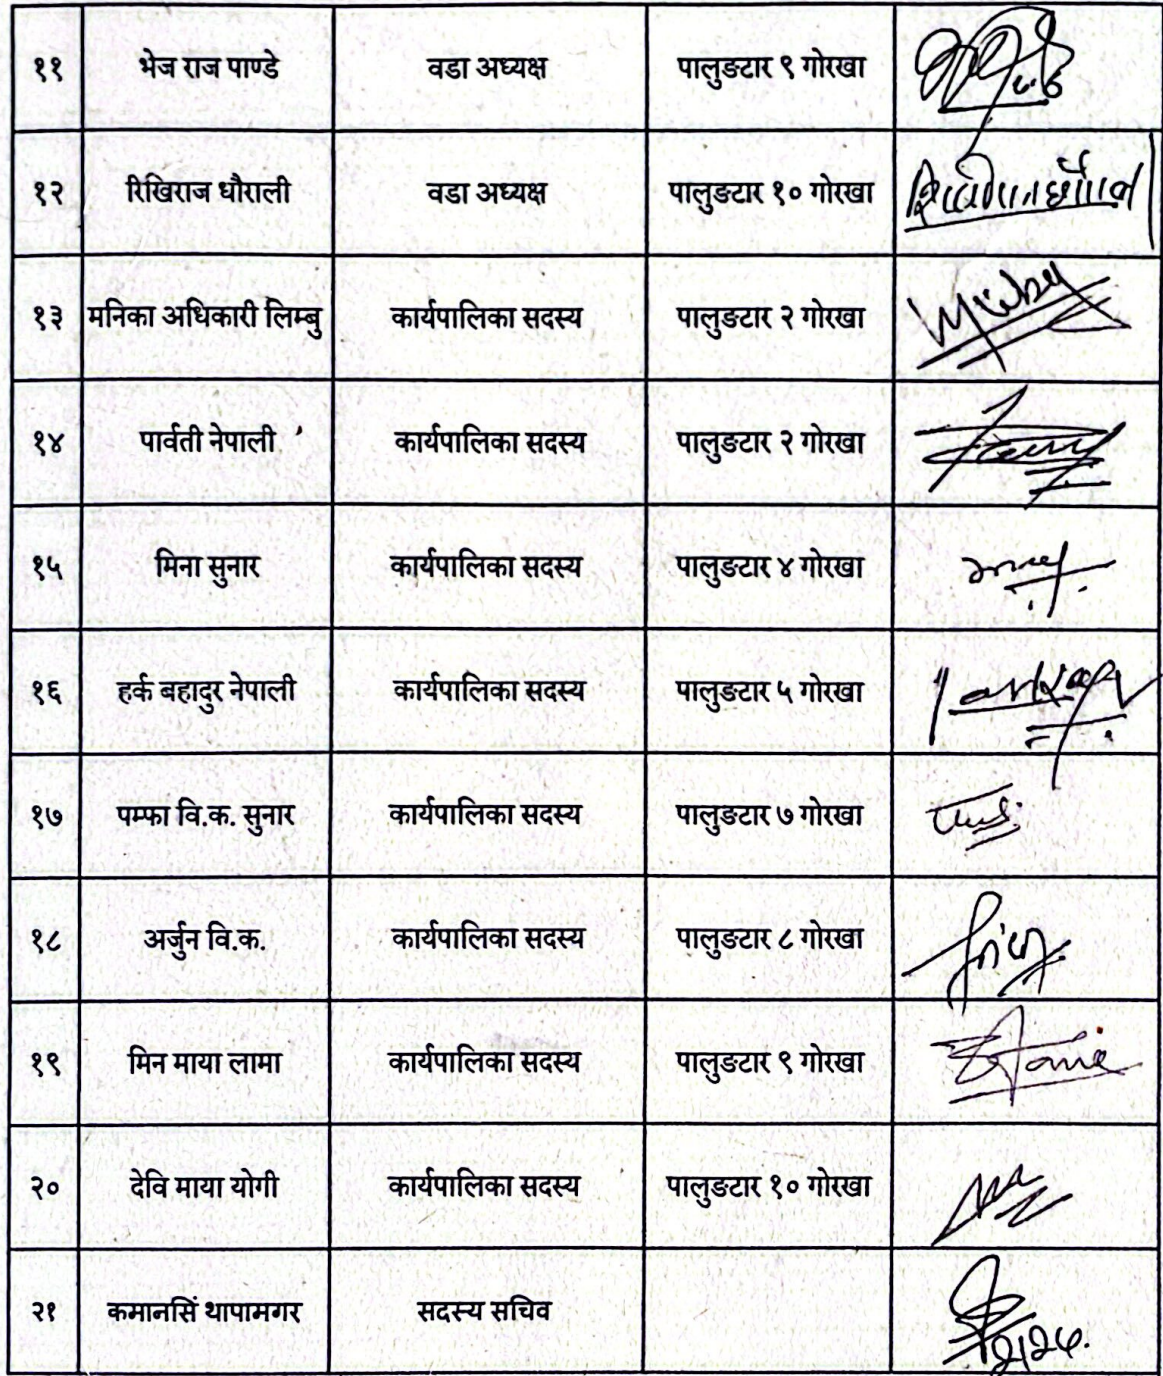 ११ भेज राज पाण्डे वडा अध्यक्ष पालुङटार ९ गोरखा
१२ रिखिराज धौराली वडा अध्यक्ष पालुङटार १० गोरखा
१३ मनिका अधिकारी लिम्बु कार्यपालिका सदस्य पालुङटार २ गोरखा
१४ पार्वती नेपाली कार्यपालिका सदस्य पालुङटार २ गोरखा
१५ मिना सुनार कार्यपालिका सदस्य पालुङटार ४ गोरखा
१६ हर्क बहादुर नेपाली कार्यपालिका सदस्य पालुङटार ५ गोरखा
१७ पम्फा वि.क. सुनार कार्यपालिका सदस्य पालुङटार ७ गोरखा
१८ अर्जुन वि.क. कार्यपालिका सदस्य पालुङटार ८ गोरखा
१९ मिन माया लामा कार्यपालिका सदस्य पालुङटार ९ गोरखा
२० देवि माया योगी कार्यपालिका सदस्य पालुङटार १० गोरखा
२१ कमानसिं थापामगर सदस्य सचिव